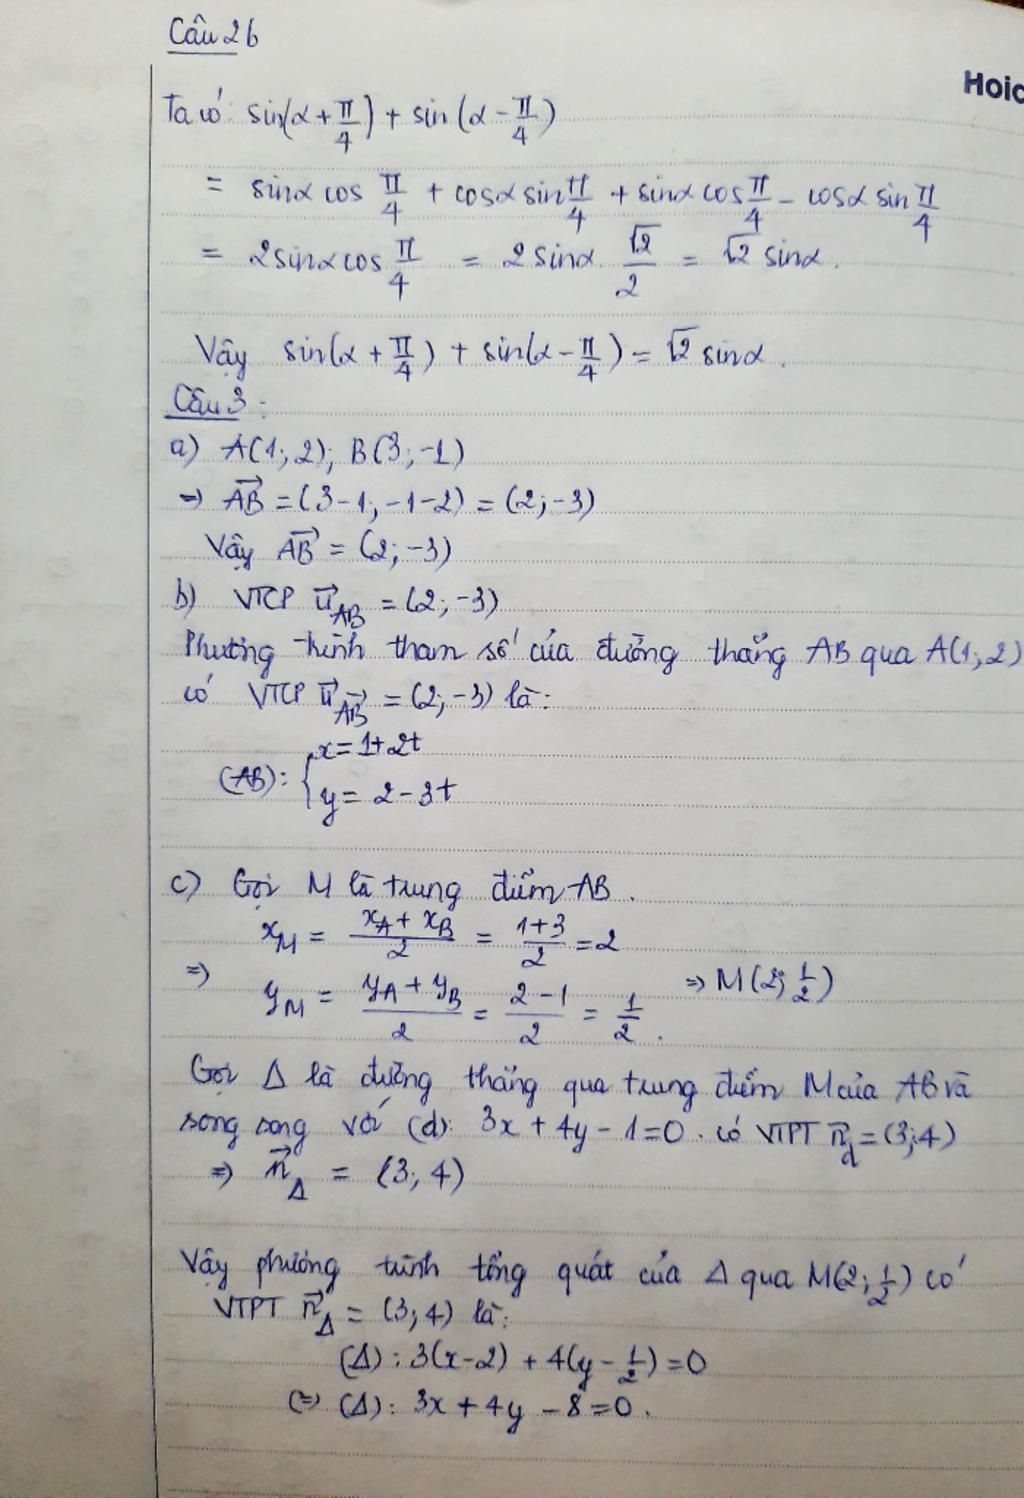 Câu 2b
Hoic
Ta có: sin(α + π/4) + sin(α - π/4)
= sinα cos π/4 + cosα sin π/4 + sinα cos π/4 - cosα sin π/4
= 2sinα cos π/4 = 2 sinα. √2/2 = √2 sinα.
Vậy sin(α + π/4) + sin(α - π/4) = √2 sinα.
Câu 3:
a) A(1; 2); B(3; -1)
=> AB→ = (3-1; -1-2) = (2; -3)
Vậy AB→ = (2; -3)
b) VTCP u→AB = (2; -3)
Phương trình tham số của đường thẳng AB qua A(1; 2)
có VTCP u→AB→ = (2; -3) là:
(AB): { x = 1 + 2t
y = 2 - 3t
c) Gọi M là trung điểm AB.
xM = (xA + xB)/2 = (1+3)/2 = 2
=> yM = (yA + yB)/2 = (2-1)/2 = 1/2. => M(2; 1/2)
Gọi Δ là đường thẳng qua trung điểm M của AB và
song song với (d): 3x + 4y - 1 = 0. có VTPT n→d = (3; 4)
=> n→Δ = (3; 4)
Vậy phương trình tổng quát của Δ qua M(2; 1/2) có
VTPT n→Δ = (3; 4) là:
(Δ): 3(x-2) + 4(y - 1/2) = 0
(=> (Δ): 3x + 4y - 8 = 0.